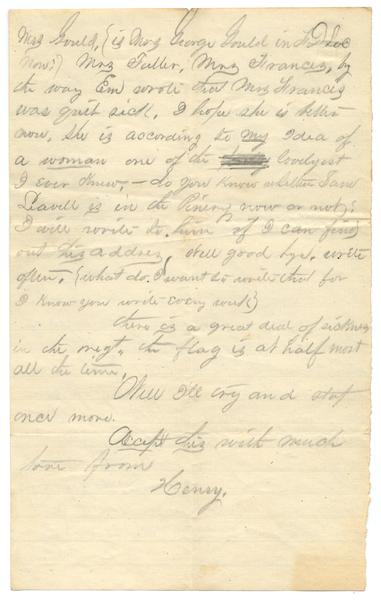 Mrs Gould, (is Mrs George Gould in
Now?) Mrs Fuller, Mrs Francis, by
the way Em wrote that Mrs Francis
was quit sick. I hope she is better
now, she is according to my Idea of
a woman one of the lovelyest
I ever knew, - do you know whether Sam
Leavell is in the Pinery now or not?
I will write to him if I can find
out his addres, Well good bye. write
often, (what do I want to write that for
I know you write every week)
there is a great deal of sickness
in the regt. the flag is at half mast
all the time,
Well I'll try and stop
once more.
Accept this with much
love from
Henry.